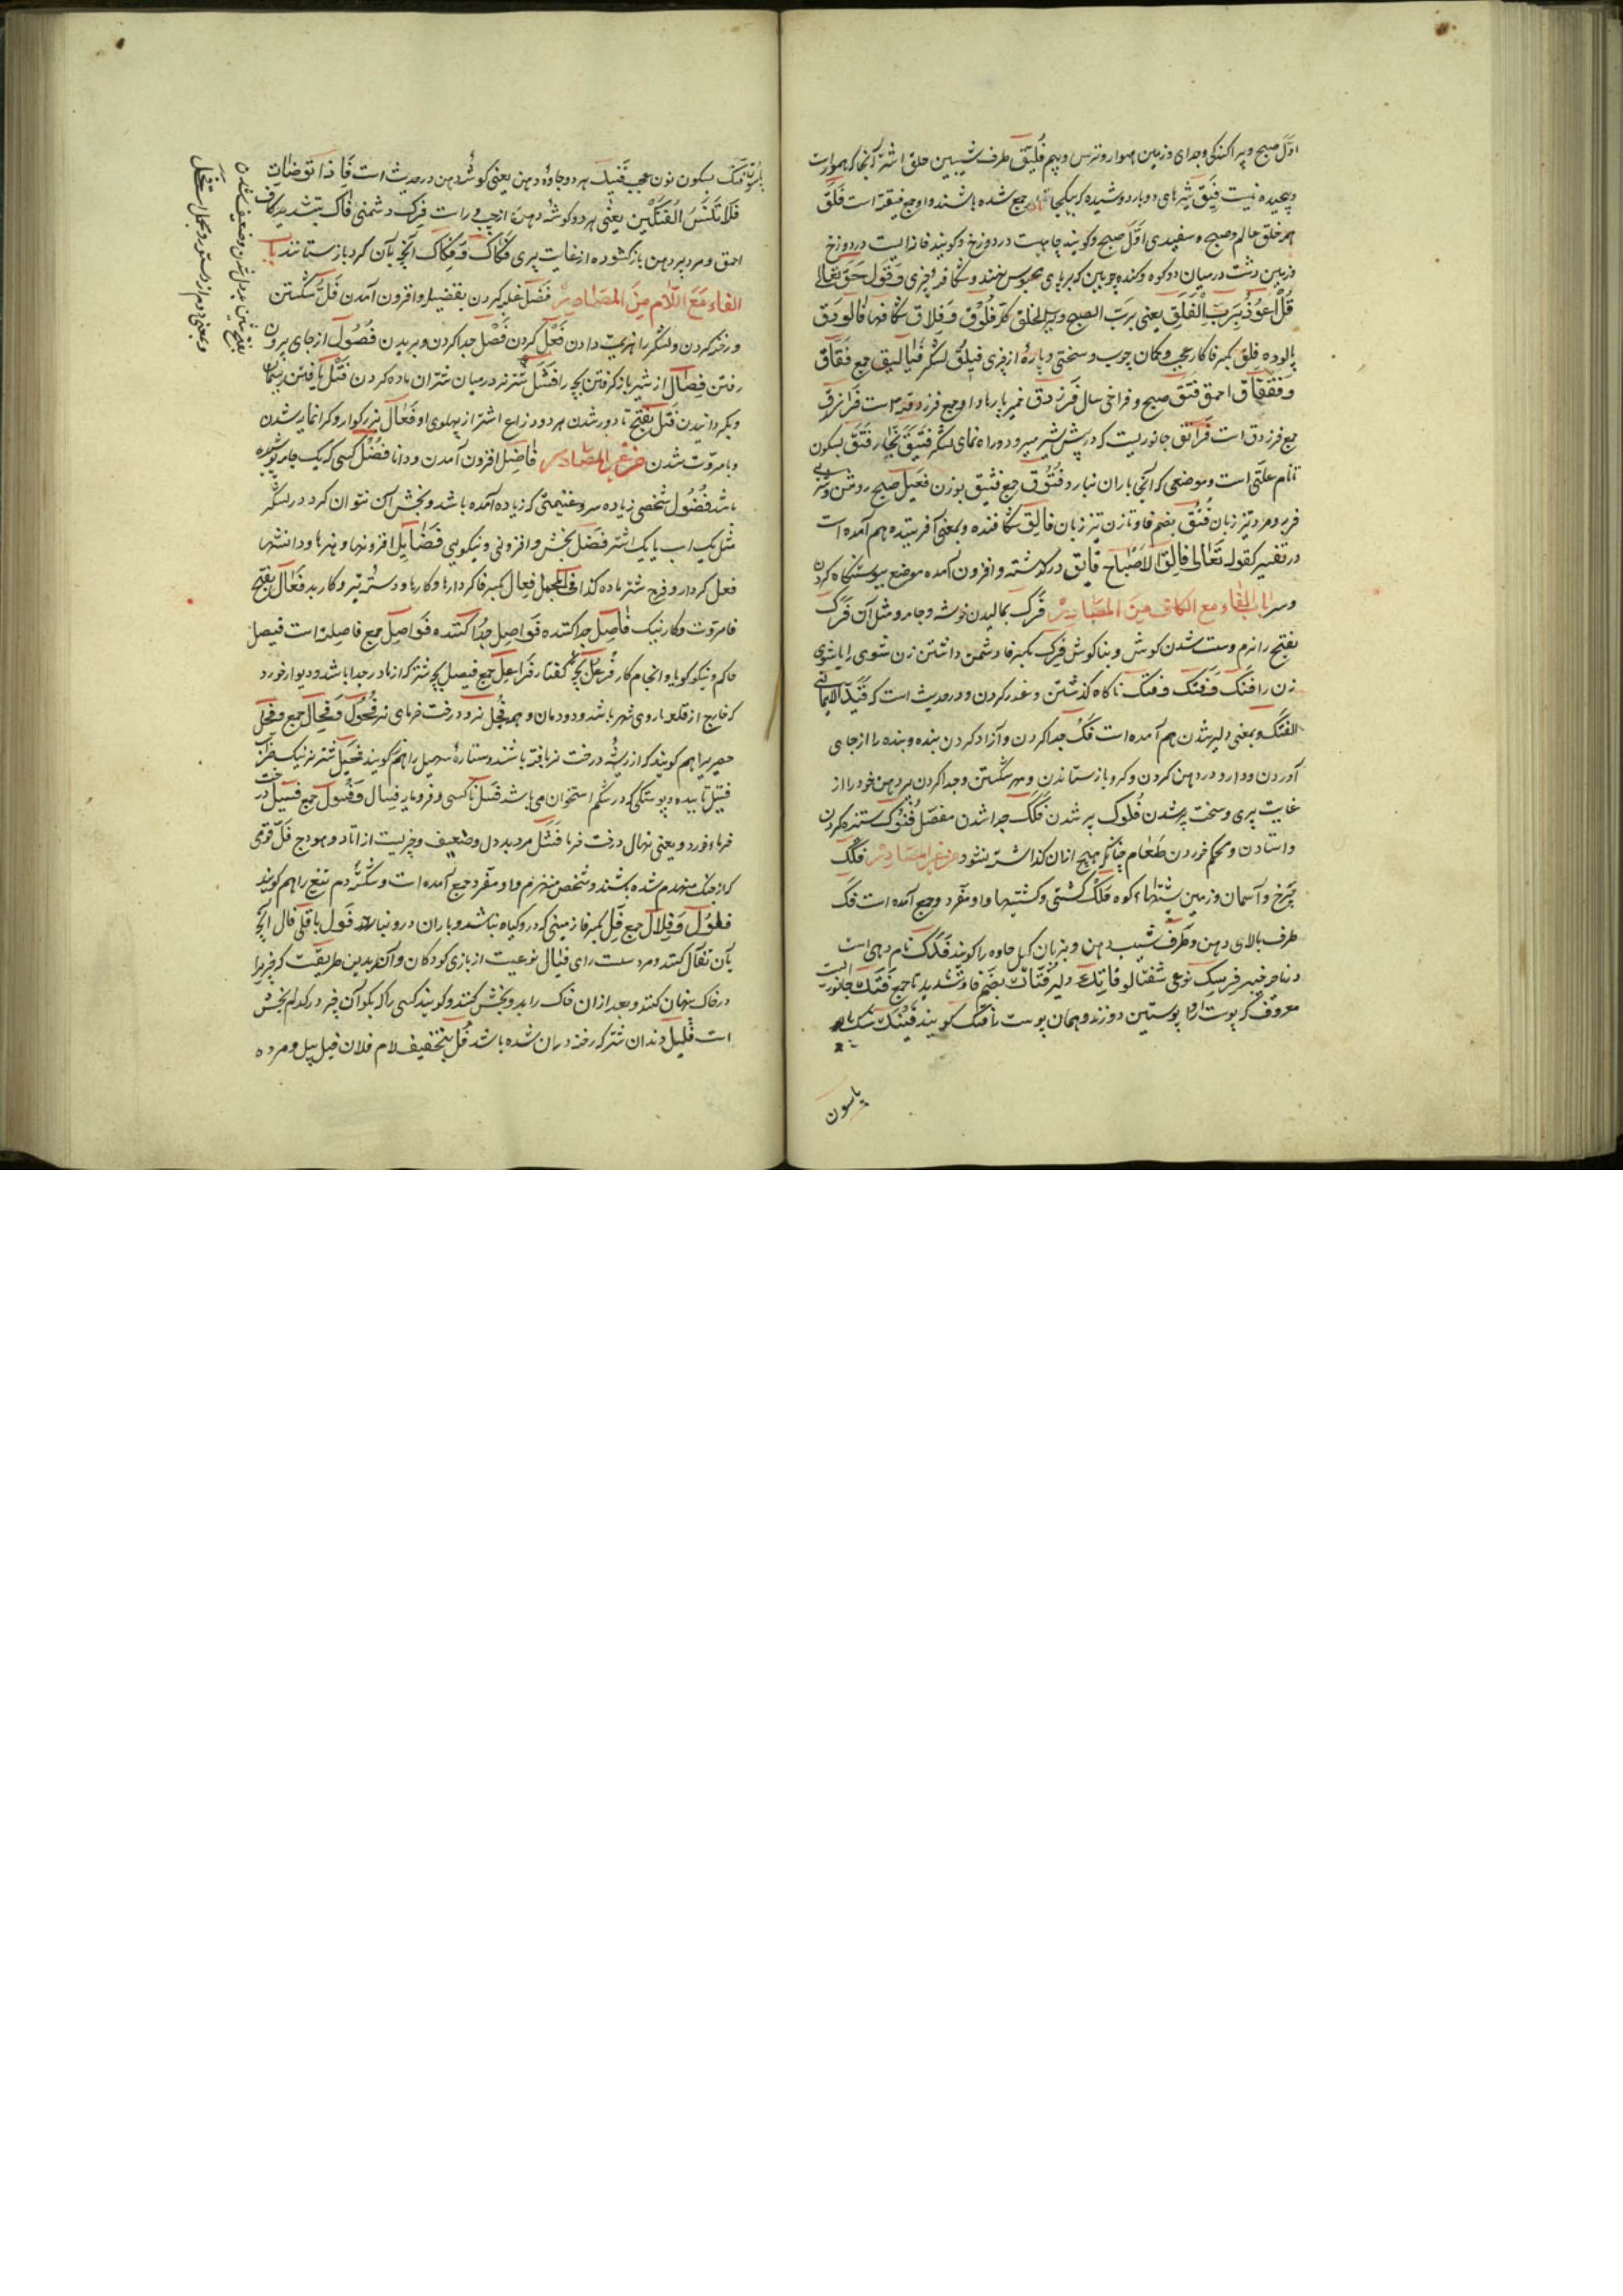 اوّل صبح و پراکندگی و جدای و زمین هموار و ترس و بیم فَلِیق طرف شیبین حلق اشتر آنجا که هموار است
و پیچیده نیست فَیِّق شیرهای دوبار دوشیده که بیکجا جمع شده باشند و او جمع فیقة است فَلَق
همه خلق عالم و صبح و سفیدی اوّل صبح و گویند چاهیست در دوزخ و گویند خانه ایست در دوزخ
و زمین دشت در میان دو کوه و کنده چوبین که بر پای محبوس نهند و شکاف چیزی و قوله حق تعالی
قُلْ اَعُوْذُ بِرَبِّ الْفَلَقِ یعنی برب الصبح فُلُوْق و فِلاق شکافها فالوذق
پالوده فِلق بکسر فا کار عجب و کمان چوب و سختی و پاره از چیزی فیلق لشکر فیالیق جمع فَقَاق
و فَقْفَاق احمق فَتَق صبح و فراخی سال فَرَزْدَق خمیر پارها و او جمع فرزدقه است فَرَازق
جمع فرزدق است فُرَانق جانوریست که در پیش شیر میرود و راه نمای لشکر فَتِیق نجار فَتْق بسکون
تا نام علتی است و موضعی که آنجا باران نبارد فُتُوْق جمع فتیق بوزن فعیل صبح روشن و شتر
فربه و مرد تیز زبان فُتُق بضم فا و تا زن تیز زبان فالِق شکافنده و بمعنی آفریننده هم آمده است
در تفسیر کقوله تعالی فالِقُ الاَصْبَاح فایق در گذشته و افزون آمده موضع پیوستگاه گردن
و سر باب الفاء مع الکاف من المصادر فَرْک بمالیدن خوشه و جامه و مثل آن فَرَک
بفتح را نرم و سست شدن گوش و بنا گوش فِرْک بکسر فا دشمن داشتن زن شوی را یا شوی
زن را فَتْک و فِتْک و فُتْک ناگاه کشتن و غدر کردن و در حدیث است که قَیَّدَ الایمانُ
الفتک و بمعنی دلیر شدن هم آمده است فَکّ جدا کردن و آزاد کردن بنده و بنده را از جای
آوردن و دارو در دهن کردن و گرو باز ستاندن و مهر شکستن و جدا کردن پیر دهن خود را از
غایت پیری و سخت پیر شدن فُکوک پیر شدن فَکَک جدا شدن مفصل فُنُوک ستیزه کردن
و استادن و محکم خوردن طعام چنانکه هیچ از ان گذاشته نشود و من غیر المصادر فَلَک
چرخ و آسمان و زمین پشتها و کوه فُلْک کشتی و کشتیها و او مفرد و جمع آمده است فَکّ
طرف بالای دهن و طرف شیب دهن و بزبان گیل جاوه را گویند فَدَک نام دهی است
در ناحیه خیبر فِرسِک نوعی شفتالو فاتِک دلیر فُتّاک بضم فا و تشدید تا جمع فَنَک جانوریست
معروف که پوست او را پوستین دوزند و همان پوست را فنک گویند فَیْنَک سنگ پا
پاسون
فنک بسکون نون عجب فَنِیک هر دو جاوهٔ دهن یعنی گوشهٔ دهن در حدیث است فَاِذا تَوَضَّأتَ
فَلا تَنْسَ الفَنِیکَیْن یعنی هر دو گوشهٔ دهن از چپ و راست فِرک دشمنی فاکّ بتشدید کاف
احمق و مرد پیر دهن باز گشوده از غایت پیری فَکاک و فِکاک آنچه بآن گرو باز ستانند باب
الفاء مَعَ اللام مِنَ المصَادِر فَضْل غلبه کردن بفضیلت و افزون آمدن فَلّ شکستن
و رخنه کردن و لشکر را هزیمت دادن فَعْل کردن فَصْل جدا کردن و بریدن فُصُوْل از جای بیرون
رفتن فِصَال از شیر باز گرفتن بچه را فَحْل شتر نر در میان شتران ماده کردن فَتْل تافتن ریسمان
و بگردانیدن فَتَل بفتح تا دور شدن هر دو ذراع اشتر از پهلوی او فَعَال بزرگوار و گرانمایه شدن
و بامروّت شدن من غیر المصادر فاضِل افزون آمدن و دانا فُضُل کسی که یک جامه پوشیده
باشد فُضُول شخصی زیاده سر و غنیمتی که زیاده آمده باشد و بخش آن نتوان کرد در لشکر
مثل یک اسب یا یک اشتر فَضْل بخشش و افزونی و نیکویی فَضَایِل افزونیها و هنرها و دانشها
فعل کردار و فرج شتر ماده کذا فی المجمل فِعال بکسر فا کردارها و کارها و دسته تبر و کار بد فَعَال بفتح
فا مروّت و کار نیک فاصِل جدا کننده فَواصِل جدا کننده فَوَاصِل جمع فاصله است فیصل
حاکم و نیکو گویا و انجام کار فُرْعُل بچه کفتار فَرَاعِل جمع فصیل بچه شتر که از مادر جدا باشد و دیوار خورد
که خارج از قلعه باروی شهر باشد و دودمان و همه فحل نر و درخت خرمای نر فُحُول و فِحَال جمع و فَحْل
حصیر را هم گویند که از ریشهٔ درخت خرما بافته باشند و ستارهٔ سهیل را هم گویند فَحِیل شتر نر نیک ضراب
فتیل تابیده و پوستکی که در شکم استخوان می باشد فَسْل ناکسی و فرومایه فِسَال و فُسُوْل جمع فسیل درخت
خرماء خورد یعنی نهال درخت خرما فَشِل مرد بد دل و ضعیف و چیزیست از اثاث هودج فَلّ قومی
که از جنگ منهزم شده باشند و شخص منهزم و او مفرد و جمع آمده است و شکستگی دم تیغ را هم گویند
فلول و فِلال جمع فِلّ بکسر فا زمینی که در و گیاه نباشد و باران در و نبارد فُوْل باقلی فال آنچه
بآن تفأل کنند و مرد سست رای فِئال نوعیست از بازی کودکان و آن بدین طریقست که چیزیرا
در خاک پنهان کنند و بعد از ان خاک را بدو بخش کنند و گویند کسی را که بگو آن چیز در کدام بخش
است فَلِیل دندان شتر که رخنه در آن شده باشد فُل بتخفیف لام فلان فیل پیل و مرد
بفتح شین بد دل شدن و ضعیف شدن
و بمعنی دوم از دستور و مجمل است فَشَل